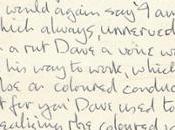 would again say "I am
which always, unnerved
n a rut Dave a voice w
his way to work, which
be an coloured conduc
t for you Dave used to
ealising the coloured